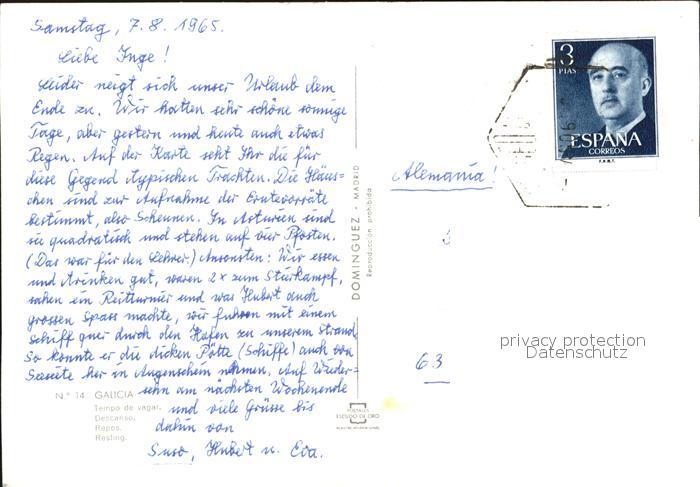 Samstag, 7.8.1965.
Liebe Inge!
Leider neigt sich unser Urlaub dem
Ende zu. Wir hatten sehr schöne sonnige
Tage, aber gestern und heute auch etwas
Regen. Auf der Karte seht Ihr die für
diese Gegend typischen Trachten. Die Häus-
chen sind zur Aufnahme der Erntevorräte
bestimmt, also Scheunen. In Asturien sind
sie quadratisch und stehen auf vier Pfosten.
(Das war für den Lehrer.) Ansonsten: Wir essen
und trinken gut, waren 2x zum Stierkampf,
sahen ein Reitturnier und was Hubert auch
grossen Spass machte, wir fuhren mit einem
Schiff quer durch den Hafen zu unserem Strand.
So konnte er die dicken Pötte (Schiffe) auch von
Seeseite her in Augenschein nehmen. Auf Wieder-
sehn am nächsten Wochenende
und viele Grüsse bis
dahin von
Suso, Hubert u. Eva.
N.º 14 GALICIA
Tempo de vagar.
Descanso.
Repos.
Resting.
DOMINGUEZ - MADRID
Reproducción prohibida
POSTALES
ESCUDO DE ORO
3
PTAS
ESPAÑA
CORREOS
F.N.M.T.
Alemania!
63
privacy protection
Datenschutz